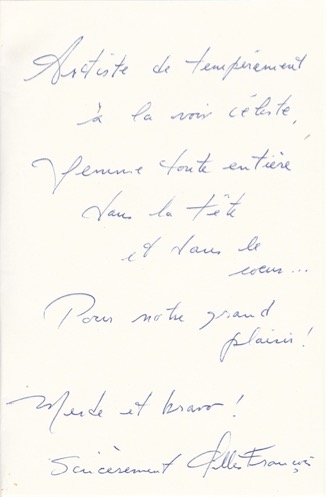 Artiste de tempérament
à la voix céleste,
femme toute entière
dans la tête
et dans le
coeur...
Pour notre grand
plaisir!
Merde et bravo!
Sincèrement Gilles François